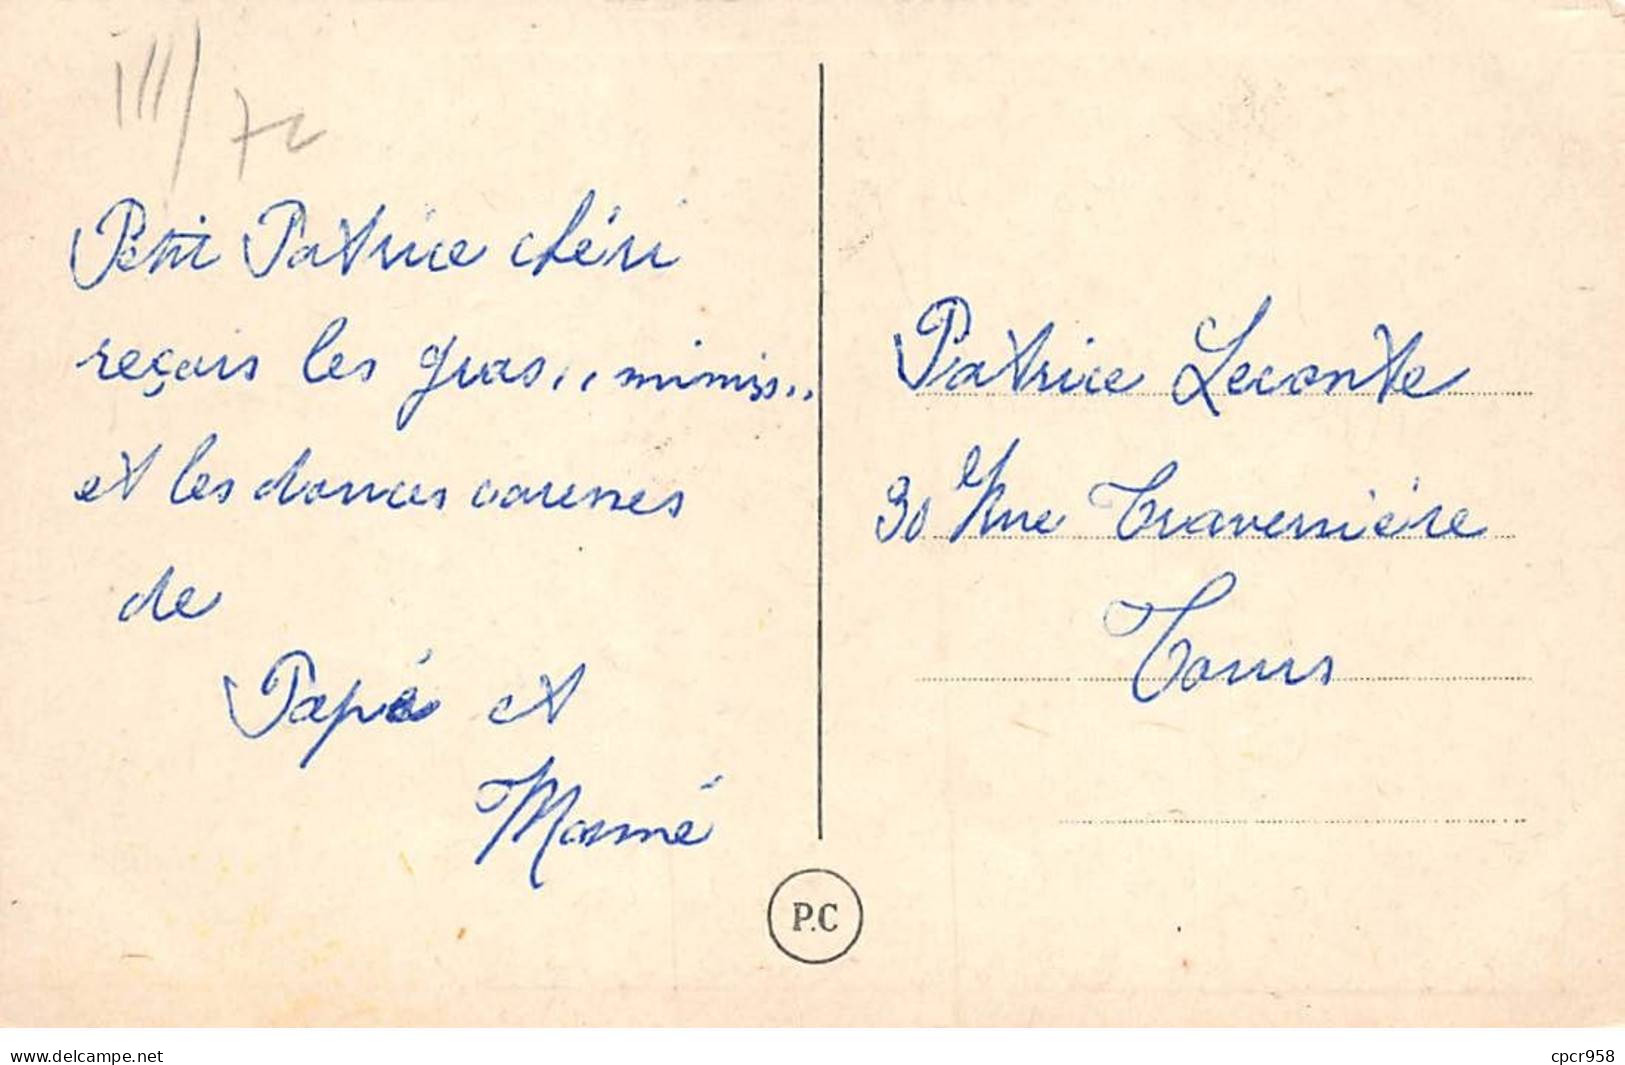 III/72
Petit Patrice chéri
reçois les gros,, mimis,,
et les douces caresses
de
Papé et
Mamé
Patrice Leconte
30 Rue Traversière
Tours
P.C
www.delcampe.net
cpcr958